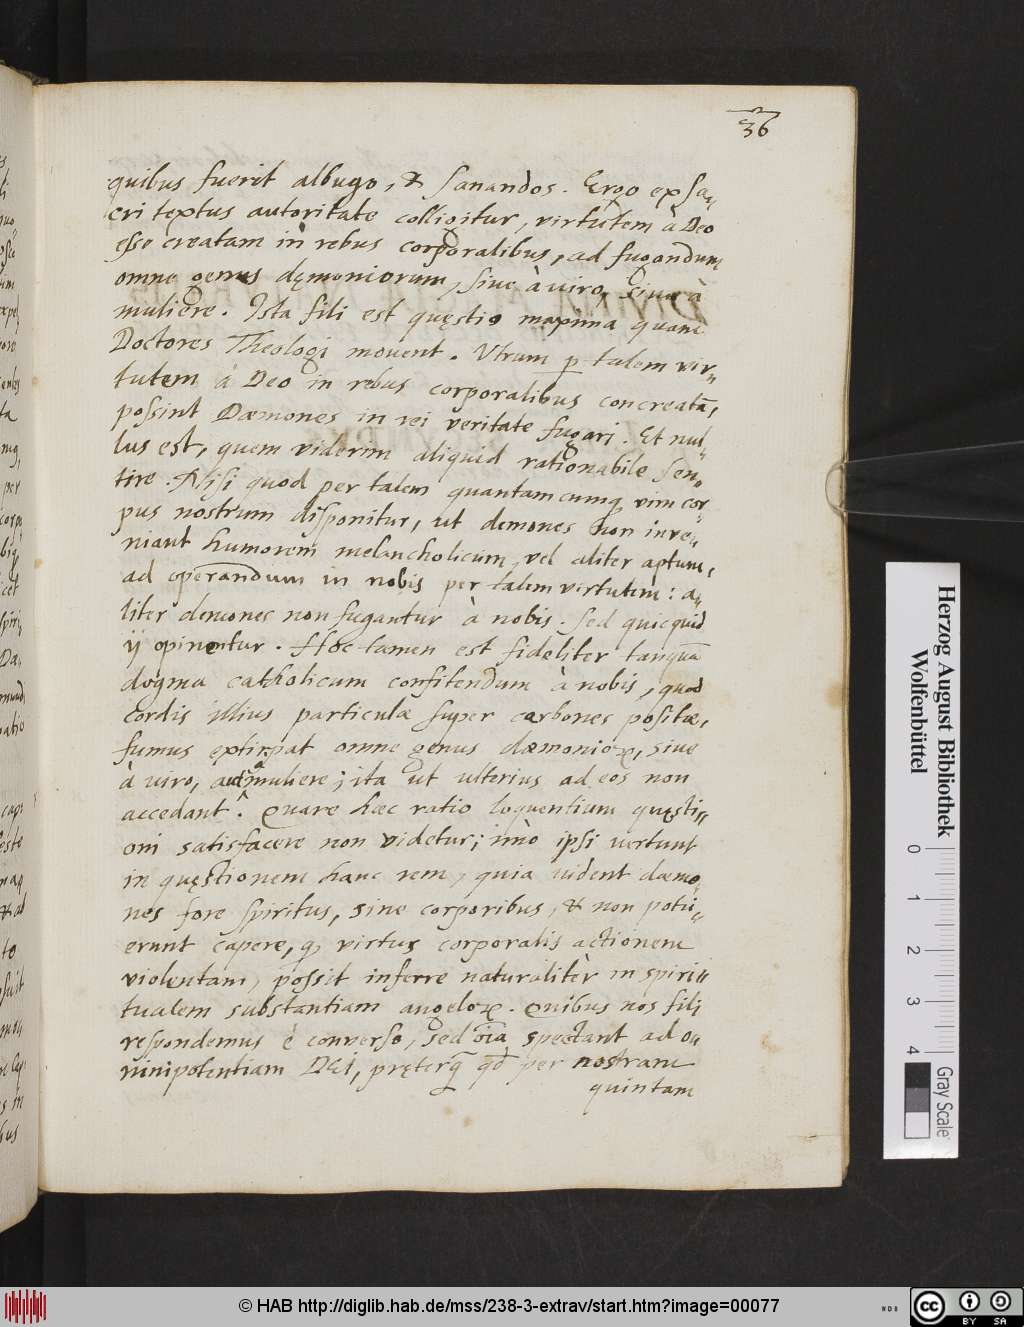 36
quibus fuerit albugo, & sanandos. Ergo ex sa„
cri textus autoritate colligitur, virtutem à Deo
esse creatam in rebus corporalibus, ad fugandum
omne genus dęmoniorum, siue à viro, siue à
muliere. Ista fili est quęstio maxima quam
Doctores Theologi mouent. Vtrum p talem vir„
tutem à Deo in rebus corporalibus concreatā,
possint Dæmones in rei veritate fugari. Et nul„
lus est, quem viderim aliquid rationabile sen„
tire. Nisi quod per talem quantamcumq vim cor„
pus nostrum disponitur, ut demones non inve„
niant humorem melancholicum, vel aliter aptum,
ad operandum in nobis per talem virtutem: a„
liter demones non fugantur à nobis. Sed quicquid
ij opinentur. Hoc tamen est fideliter tanquā
dogma catholicum confitendum à nobis, quod
cordis illius particulæ super carbones positæ,
fumus extirpat omne genus dæmonioꝝ, siue
à viro, aut à muliere; ita ut ulterius ad eos non
accedant. Quare hæc ratio loquentium quęsti„
oni satisfacere non videtur; imò ipsi vertunt
in quęstionem hanc rem, quia uident dæmo„
nes fore spiritus, sine corporibus, & non potu„
erunt capere, q virtus corporalis actionem
violentam, possit inferre naturalitèr in spiri„
tualem substantiam angeloꝝ. Quibus nos fili
respondemus è conuerso, sed oīa spectant ad o„
mnipotentiam DEI, pręterq̄ qd̄ per nostram
quintam
Herzog August Bibliothek
Wolfenbüttel
0 1 2 3 4
Gray Scale
© HAB http://diglib.hab.de/mss/238-3-extrav/start.htm?image=00077
cc BY SA